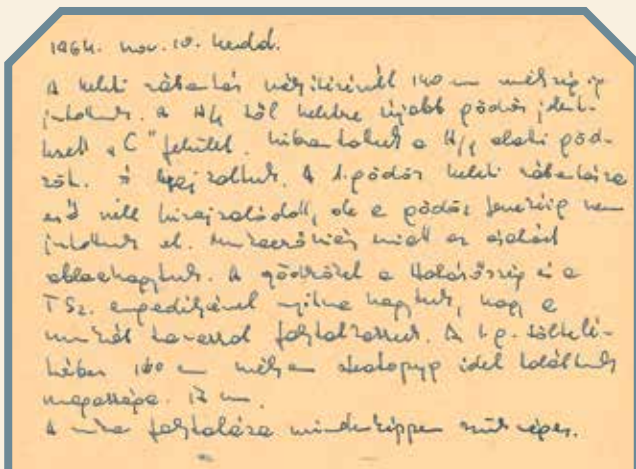 1964. nov. 10. kedd.
A keleti rábontás mélyítésénél 140 cm mélységig
jutottunk. A H/4 től keletre újabb gödör jelent-
kezett "C" felület. Kibontottuk a H/4 alatti göd-
röt. és lerajzoltuk. A 1. gödör keleti rábontásra
eső néll kirajzolódott, de a gödör fenekéig nem
jutottunk el. Munkaerőhiány miatt az ásatást
abbahagytuk. A gödröket a Hatóság és a
TSz. engedélyével nyitva hagytuk, hogy a
munkát tavasszal folytathassuk. A 1. g. tölteli-
kében 140 cm mélyen steatopyg idolt találtunk
magassága. 12 cm.
A munka folytatása mindenképpen szükséges.